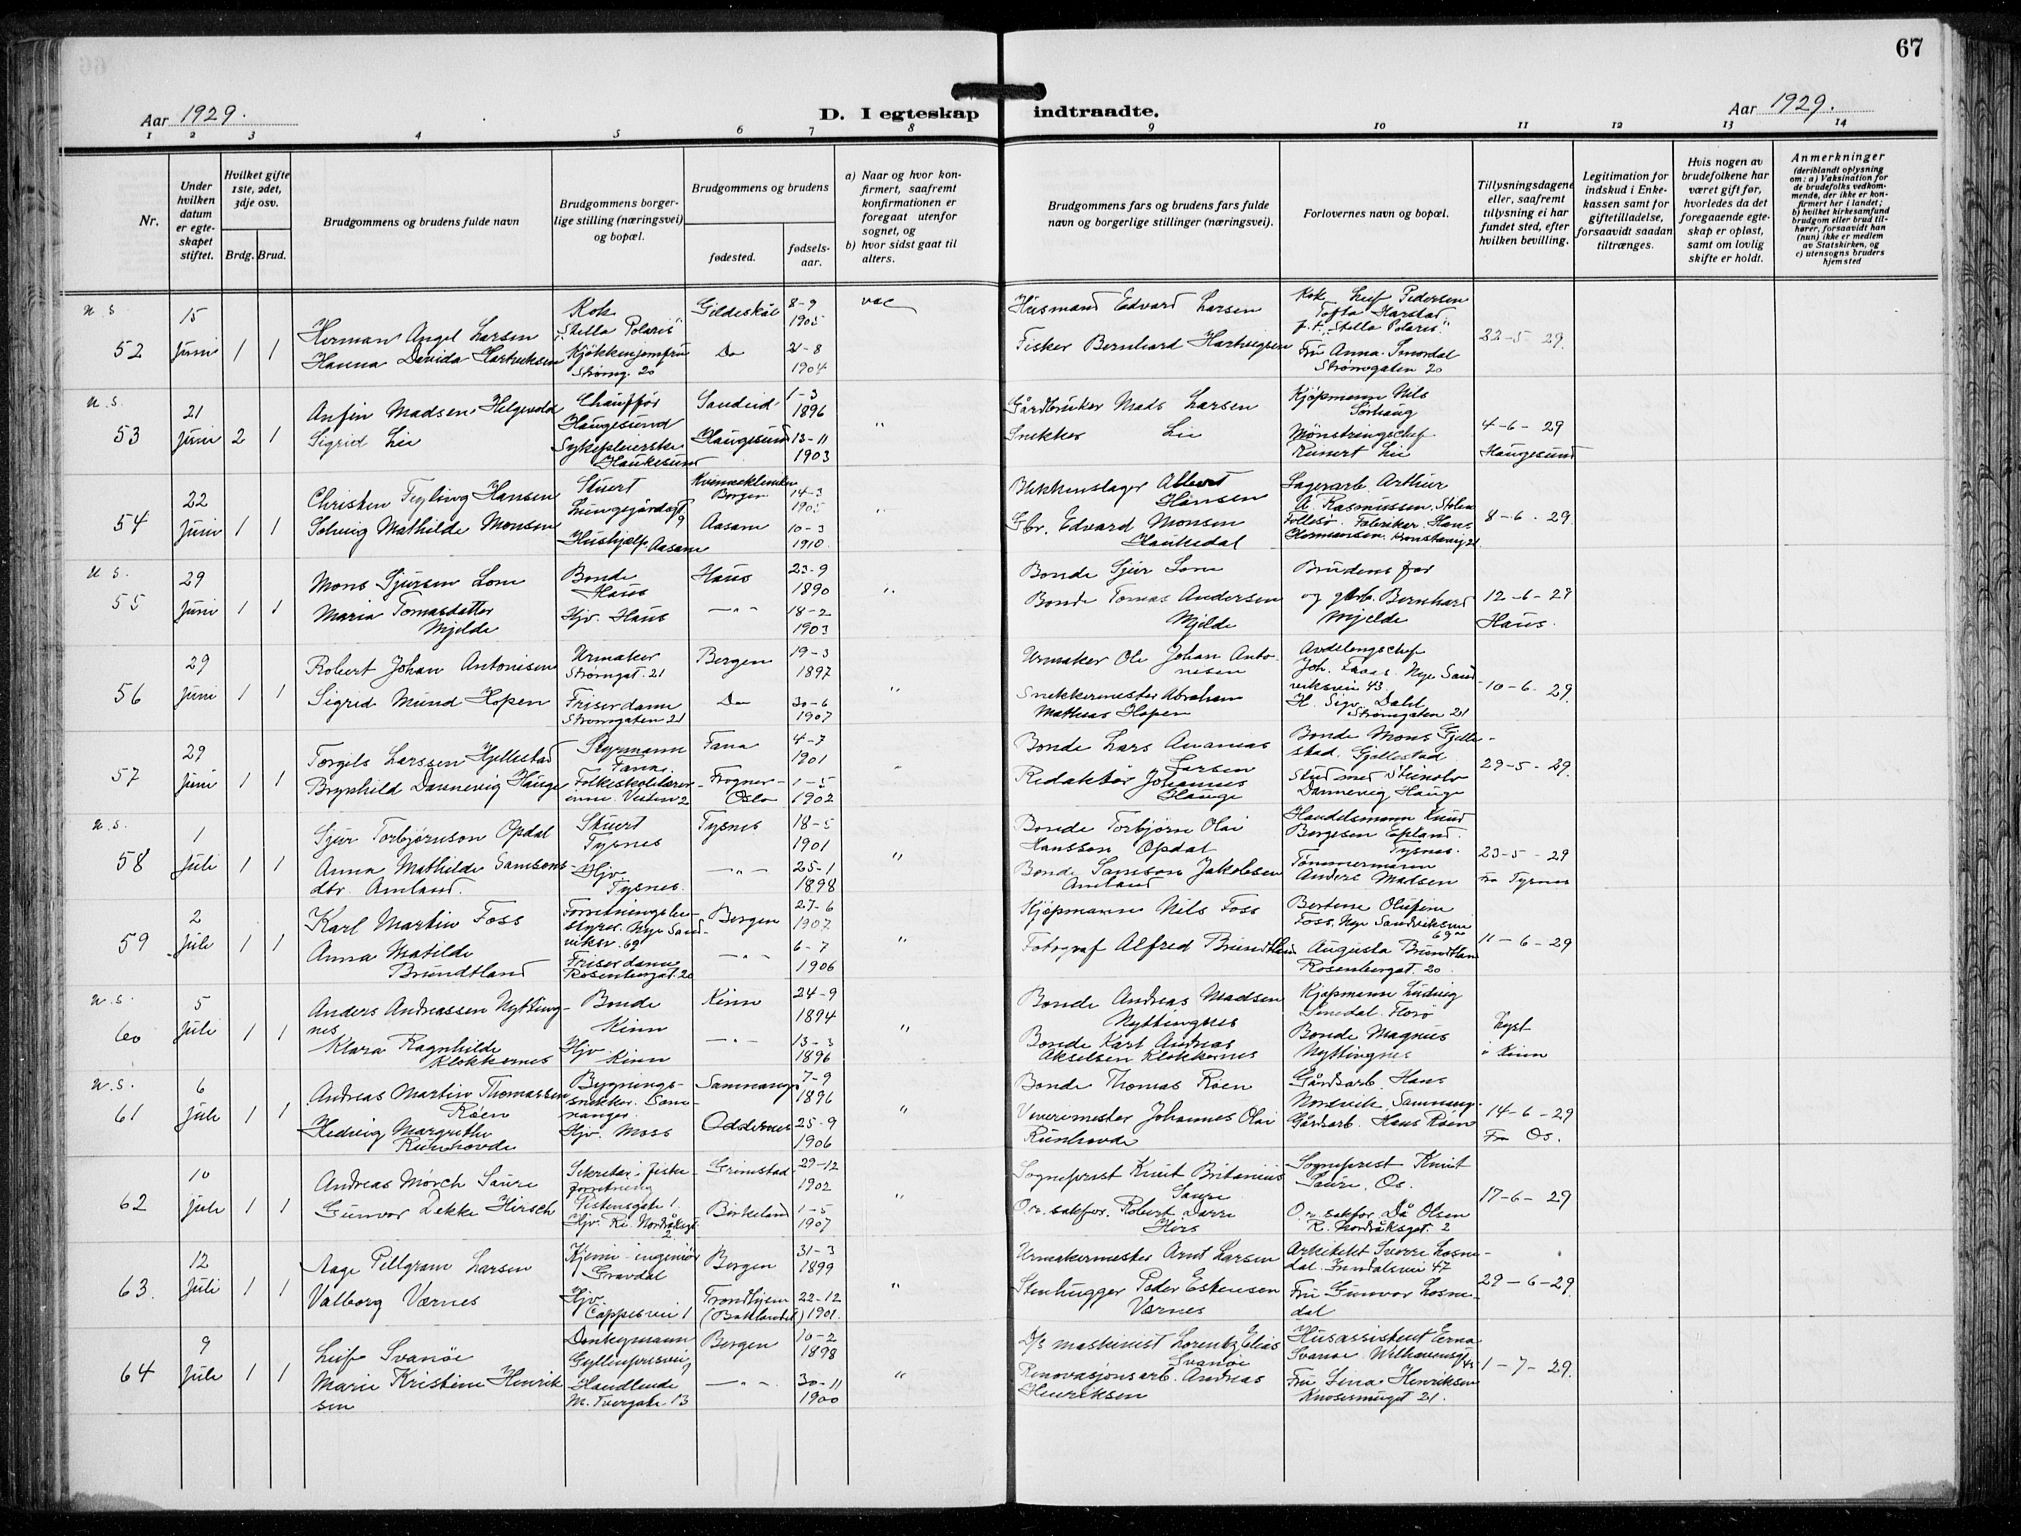 67
Aar 1929.
D. I egteskap indtraadte.
Aar 1929.
1 2 3 4 5 6 7 8 9 10 11 12 13 14
Nr.
Under hvilken datum er egteskapet stiftet.
Hvilket gifte 1ste, 2det, 3dje osv.
Brdg. Brud.
Brudgommens og brudens fulde navn
Brudgommens borgerlige stilling (næringsvei) og bopæl.
Brudgommens og brudens
fødested.
fødselsaar.
a) Naar og hvor konfirmert, saafremt konfirmationen er foregaat utenfor sognet, og
b) hvor sidst gaat til alters.
Brudgommens fars og brudens fars fulde navn og borgerlige stillinger (næringsvei).
Forlovernes navn og bopæl.
Tillysningsdagene eller, saafremt tillysning ei har fundet sted, efter hvilken bevilling.
Legitimation for indskud i Enkekassen samt for giftetilladelse, forsaavidt saadan tiltrænges.
Hvis nogen av brudefolkene har været gift før, hvorledes da det foregaaende egteskap er opløst, samt om lovlig skifte er holdt.
Anmerkninger
(deriblandt oplysning om: a) Vaksination for de brudefolks vedkommende, der ikke er konfirmert her i landet;
b) hvilket kirkesamfund brudgom eller brud tilhører, forsaavidt han (hun) ikke er medlem av Statskirken, og
c) utensogns bruders hjemsted
u. s.
52 15 Juni 1 1
Herman Angel Larsen
Hanna Davida Hartviksen
Kok "Stella Polaris"
Kjøkkenjomfru Strømg. 20
Gildeskål
Do
8-9 1905
21-8 1904
vac
Husmand Edvard Larsen
Fisker Bernhard Hartvigsen
Kok Leif Pedersen
Tofta Harstad
p.t. "Stella Polaris"
Fru Anna Smördal
Strømgaten 20
22-5-29.
u. s.
53 21 Juni 2 1
Anfin Madsen Helgevold
Sigrid Lie
Chauffør
Haugesund
Sykepleierske
Haukesund
Sandeid
Haugesund
1-3 1896
13-11 1903
"
Gårdbruker Mads Larsen
Snekker Lie
Kjøpmann Nils
Sørhaug
Mønstringschef
Reinert Lie
4-6-29
Haugesund
54 22 Juni 1 1
Christen Teyling Hansen
Solveig Mathilde Monsen
Stuert
Lungegårdsgt 9
Hushjælp Aasane
Kvinneklinikken
Bergen
Aasane
14-3 1905
10-3 1910.
"
Blikkenslager Albert
Hansen
Gbr. Edvard Monsen
Haukedal
Lagerarb. Arthur
A. Rasmussen.
Follesø. Fabrikar. Hans
Hermansen. Kronstadvig 21.
8-6-29.
u. s.
55 29 Juni 1 1
Mons Sjursen Lone
Maria Tomasdatter
Mjelde
Bonde
Haus
Hjv. Haus
Haus
—"—
23-9 1890
18-2 1903
"
Bonde Sjur Lone
Bonde Tomas Andersen
Mjelde
Brudens far
og gbrb. Bernhard
Mjelde
12-6-29
Haus.
56 29 Juni 1 1
Robert Johan Antonisen
Sigrid Mund Hopen
Urmaker
Strømgat. 21
Friserdame
Strømgaten 21
Bergen
Do
19-3 1897
30-6 1907
"
Urmaker Ole Johan Antonesen
Snekkermester Abraham
Mathias Hopen
Avdelingschef
Joh. Faaas. Nye Sandviksvei 43
H. Sigv. Dahl
Strømgaten 21
10-6-29.
57 29 Juni 1 1
Torgils Larssen Hjellestad
Brynhild Dannevig Hauge
Styrmann
Fana.
Folkeskolelærerinne.
Fana
Frogner-Oslo
4-7 1901
1-5 1902
"
Bonde Lars Ananias
Larsen
Redaktør Johannes
Hauge
Bonde Mons Gjellestad. Gjellestad
Stud med Steinolv
Dannevig Hauge
29-5-29.
u. s.
58 1 Juli 1 1
Sjur Torbjørnson Opdal
Anna Mathilde Samsonsdtr. Amland.
Stuert
Tysnes
Hjv
Tysnes.
Tysnes
—"—
18-5 1901
25-1 1898
"
Bonde Torbjørn Olai
Hansson Opdal
Bonde Samson Jakobsen
Amland
Handelsmann Knud
Børgesen Epland.
Tysnes.
Tømmermann
Anders Madsen
23-5-29
Fra Tysnes
59 2 Juli 1 1
Karl Martin Foss
Anna Matilde
Brundtland
Forretningsbestyrer. Nye Sandviksv. 69
Friserdame
Rosenbergst. 20
Bergen
—"—
27-6 1907
6-7 1906
"
Kjøpmann Nils Foss
Fotograf Alfred Brundtland
Bertene Olufine
Foss, Nye Sandviksvei
69
Augusta Brundtland
Rosenbergst. 20.
11-6-29
u. s.
60 5 Juli 1 1
Anders Andreassen Nyttingnes
Klara Ragnhilde
Klokkernes
Bonde
Kinn
Hjv.
Kinn
Kinn
—"—
24-9 1894
13-3 1896
"
Bonde Andreas Madsen
Nyttingnes
Bonde Karl Andreas
Akselsen Klokkernes
Kjøpmann Ludvig
Florø
Bonde Magnus
Nyttingnes
Lyst
i Kinn
u. s.
61 6 Juli 1 1
Andreas Martin Thomassen
Røen
Hedvig Margrethe
Runhovde
Bygningssnekker. Samnanger.
Hjv. Moss
Samnanger
Oddernes
7-9 1896
25-9 1906
"
Bonde Thomas Røen
Væverimester Johannes Olai
Runhovde
Gårdarb. Hans
Nordvik. Samnang.
Gårdarb. Hans Røen
14-6-29
Fra Os.
62 10 Juli 1 1
Andreas Mørch Saure
Gunvor Dekke Hirsch
Sekretær i fiske
forretning
Hjv. Ri. Nordråksgt
2
Grimstad
Birkeland
29-12 1902
1-5 1907
"
Sogneprest Knut Britanius
Saure
O.r. sakfør. Robert Darre
Hirs
Sogneprest Knut
Saure. Os.
O.r. sakfør. Då Olsen
R. Nordråksgt. 2
17-6-29
63. 12 Juli 1 1
Aage Pillgram Larsen
Valborg Værnes
Kjemi-ingeniør
Gravdal
Hjv.
Cappesvei 1
Bergen
Trondhjem
(Baklandet)
31-3 1899
22-12 1901.
"
Urmakermester Arnt Larsen
Stenhugger Peder Eskensen
Værnes
Arkitekt Sverre Losnedal. Inndalsvei 47
Fru Gunvor Losnedal
29-6-29.
64 9 Juli 1 1
Leif Svanøe
Marie Kristine Henriksen
Donkeymann
Gyldenprisvei 9
Handlende
M. Tvergate 13
Bergen
—"—
10-2 1898
30-11 1900
"
D/s maskinist Lorentz Elias
Svanøe
Renovasjonsarb. Andreas
Henriksen
Husassistent Erna
Svanøe. Welhavensgt 45
Fru Lina Henriksen
Knøsesmuget 21.
1-7-29.